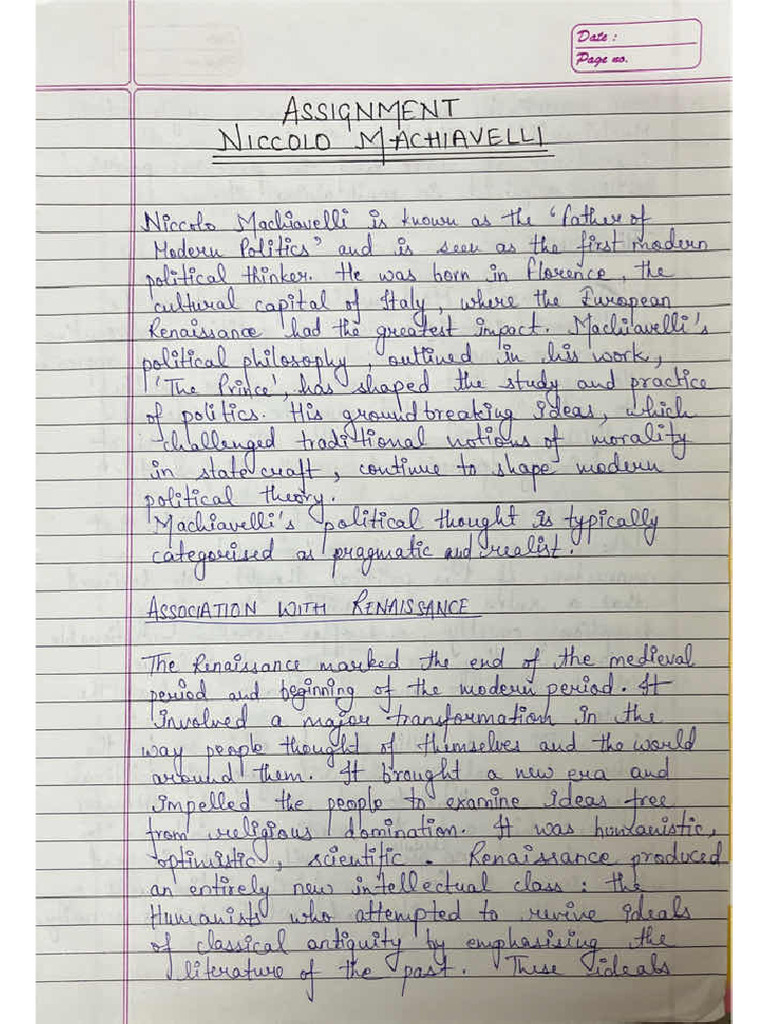 Date :
Page no.
ASSIGNMENT
NICCOLO MACHIAVELLI
Niccolo Machiavelli is known as the "father of
Modern Politics" and is seen as the first modern
political thinker. He was born in Florence, the
cultural capital of Italy, where the European
Renaissance had the greatest impact. Machiavelli's
political philosophy, outlined in his work,
'The Prince', has shaped the study and practice
of politics. His groundbreaking ideas, which
challenged traditional notions of morality
in statecraft, continue to shape modern
political theory.
Machiavelli's political thought is typically
categorised as pragmatic and realist.
ASSOCIATION WITH RENAISSANCE
The Renaissance marked the end of the medieval
period and beginning of the modern period. It
involved a major transformation in the
way people thought of themselves and the world
around them. It brought a new era and
impelled the people to examine ideas free
from religious domination. It was humanistic,
optimistic, scientific. Renaissance produced
an entirely new intellectual class : the
Humanists who attempted to revive ideals
of classical antiquity by emphasising the
literature of the past. These ideals